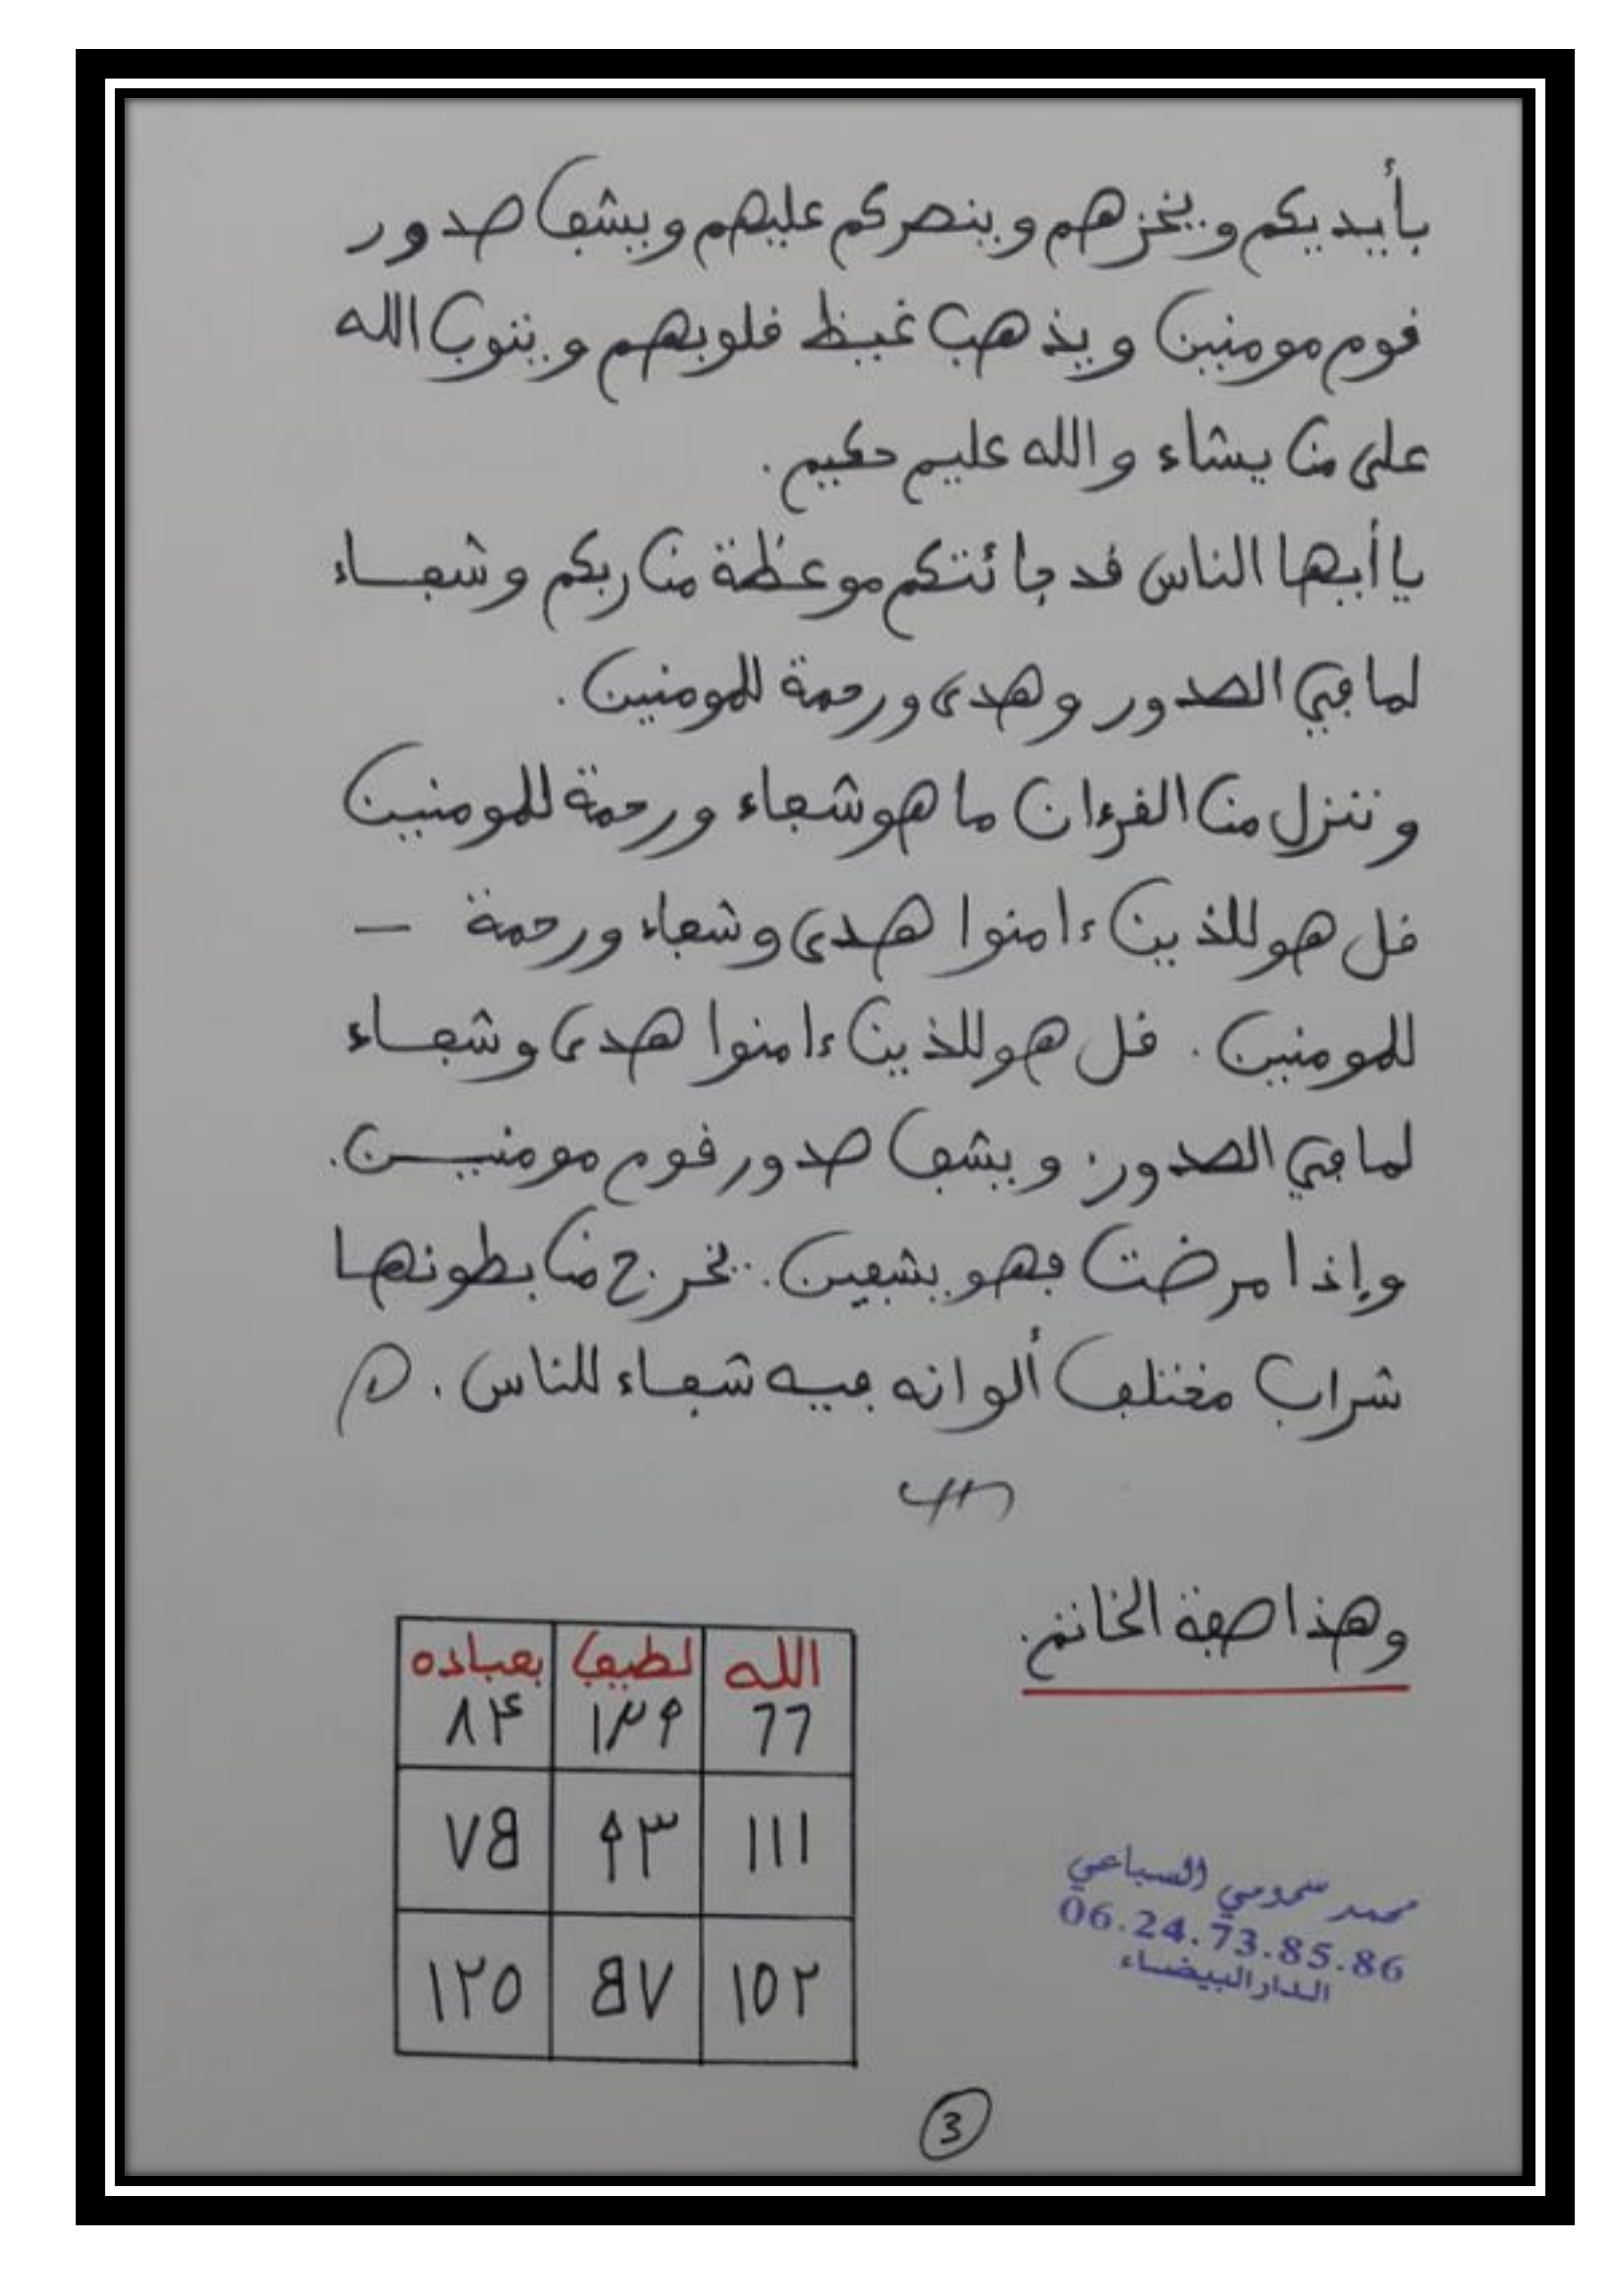 بأيديكم ويخزهم وينصركم عليهم ويشف صدور
قوم مومنين ويذهب غيظ قلوبهم ويتوب الله
على من يشاء والله عليم حكيم.
يا أيها الناس قد جائتكم موعظة من ربكم وشفاء
لما في الصدور وهدى ورحمة للمومنين.
وننزل من القرءان ما هو شفاء ورحمة للمومنين
قل هو للذين ءامنوا هدى وشفاء ورحمة –
للمومنين. قل هو للذين ءامنوا هدى وشفاء
لما في الصدور. ويشف صدور قوم مومنين.
وإذا مرضت فهو يشفين. يخرج من بطونها
شراب مختلف ألوانه فيه شفاء للناس.
وهذا صفة الخاتم.
الله لطيف بعباده
٦٦ ١٢٩ ٨٤
١١١ ٩٣ ٧٥
١٥٢ ٥٧ ١٢٥
محمد سمومي السباعي
06.24.73.85.86
الدار البيضاء
3